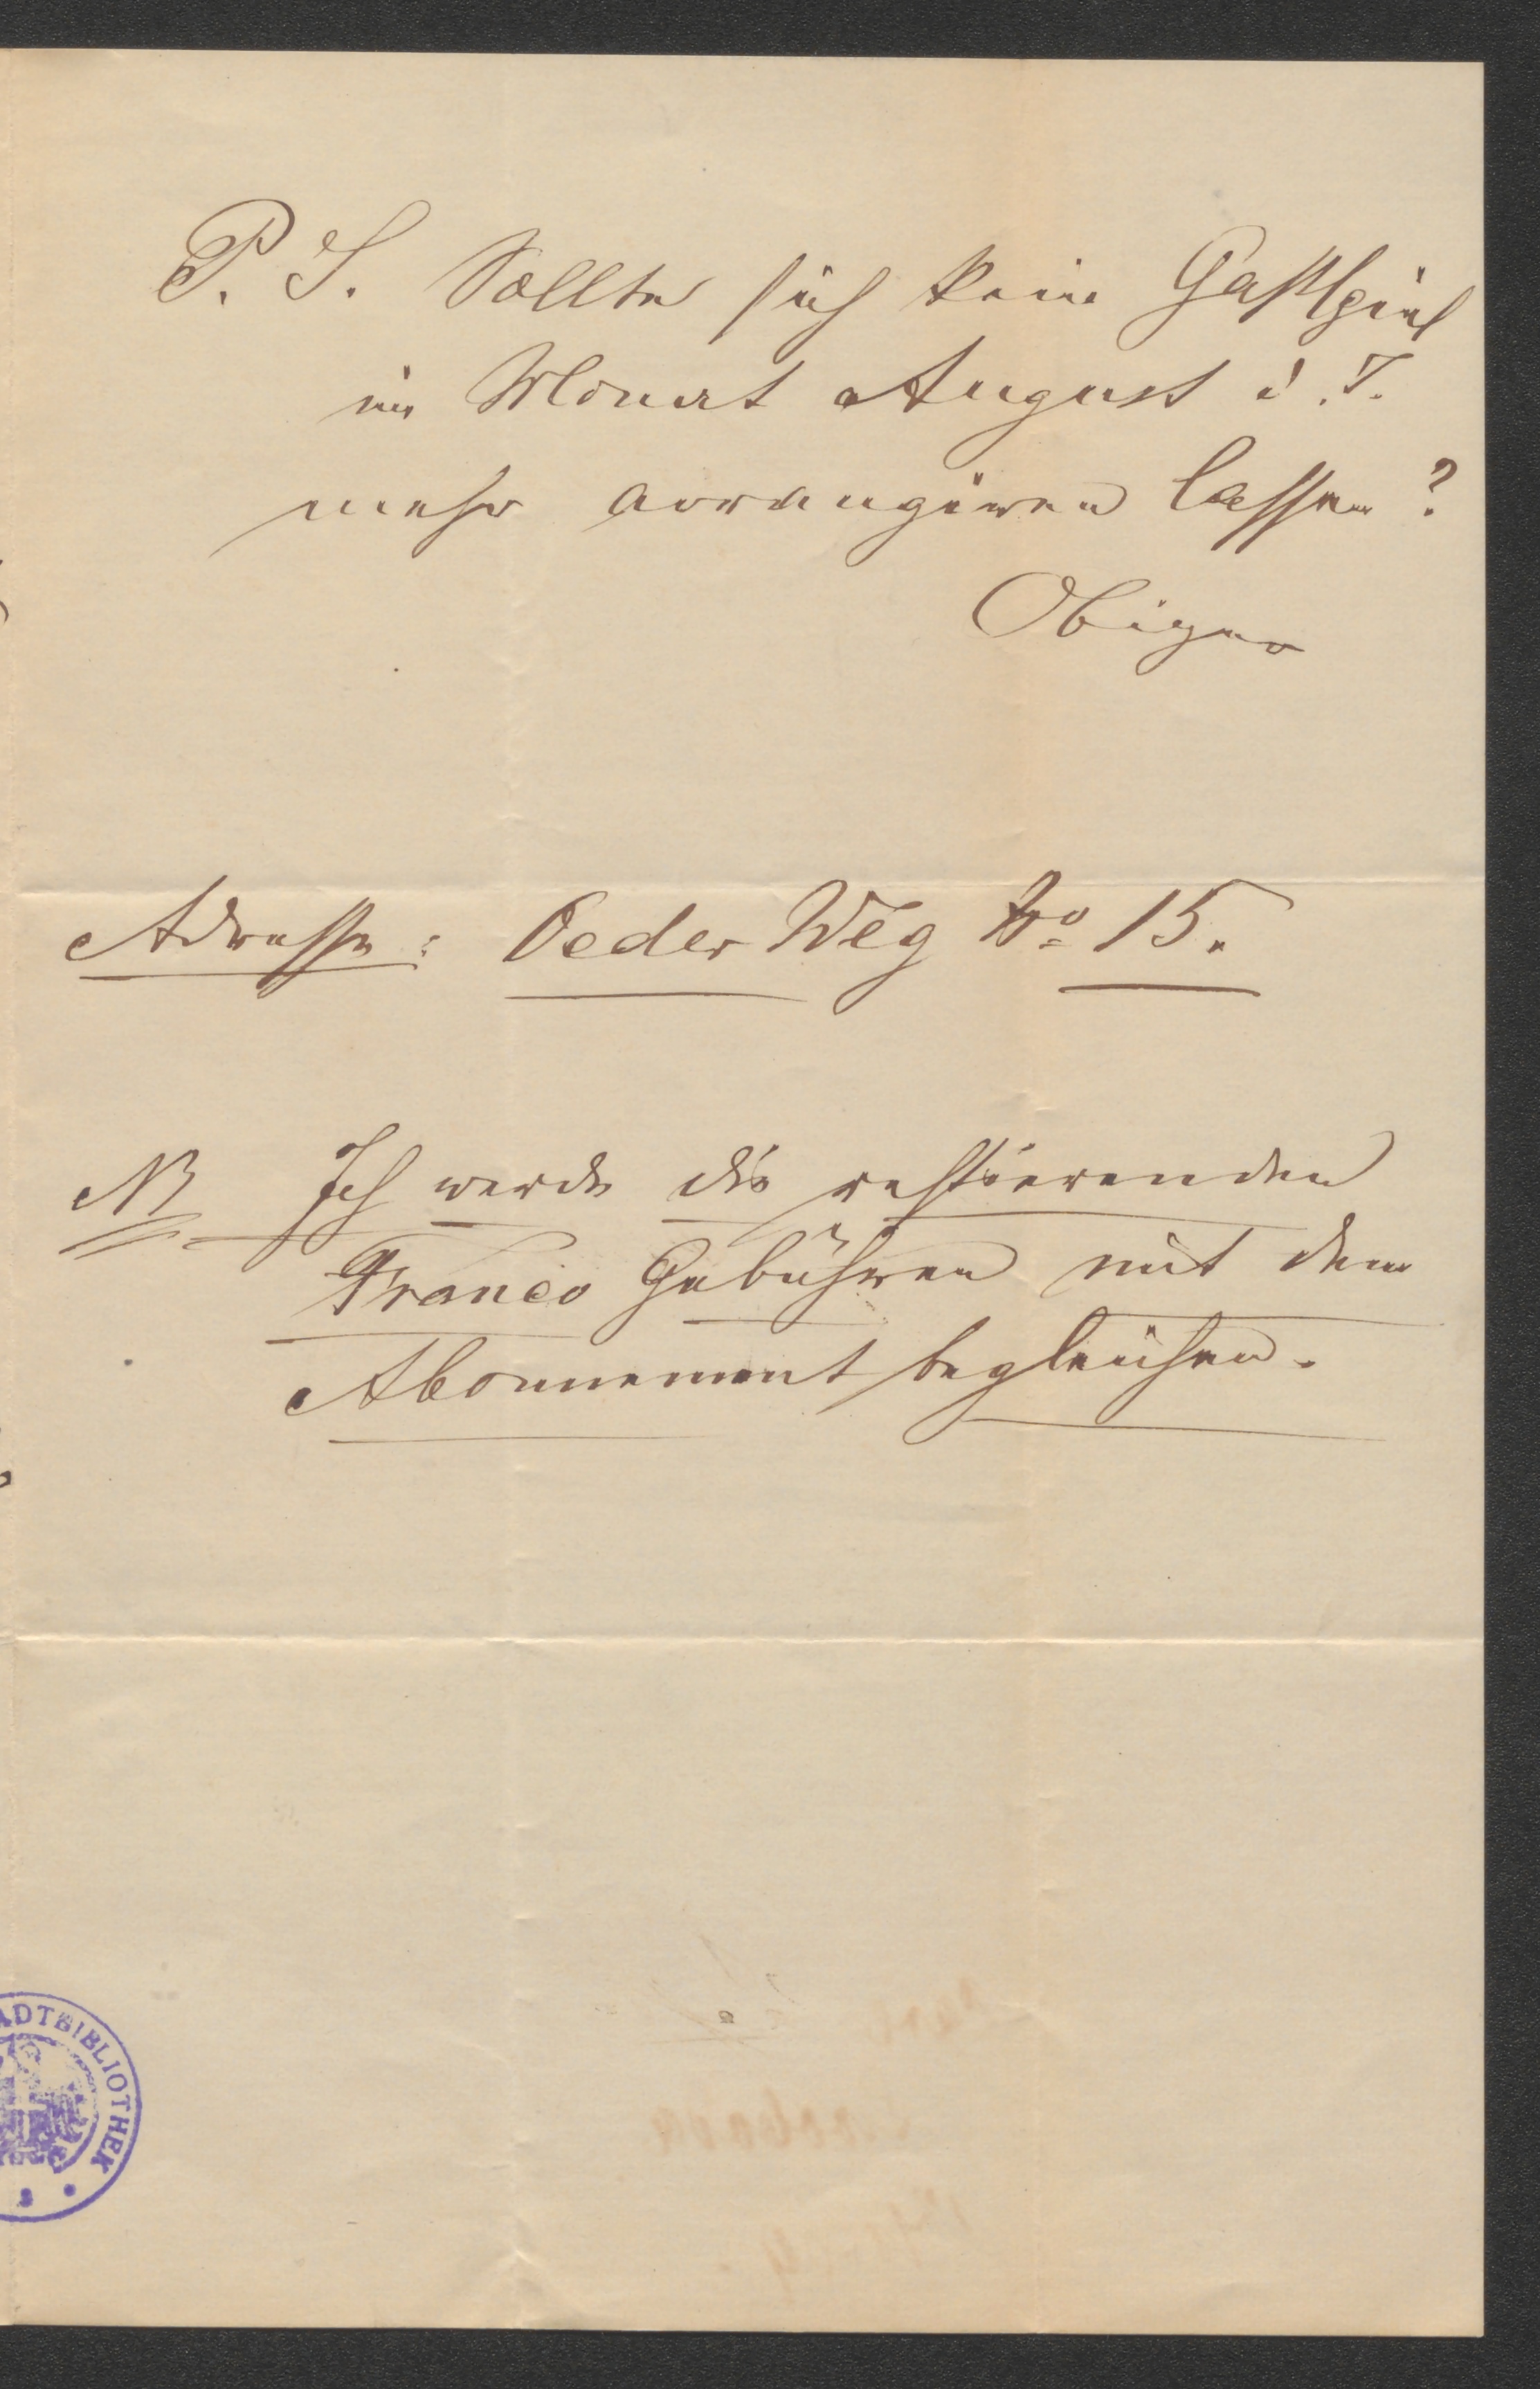 P. S. Sollte sich kein Gastspiel
im Monat August d. J.
mehr arrangiren lassen?
Obiger
Adresse: Oeder Weg No 15.
NB Ich werde die restierenden
Franco Gebühren mit dem
Abonnement begleichen.
ADTBIBLIOTHEK